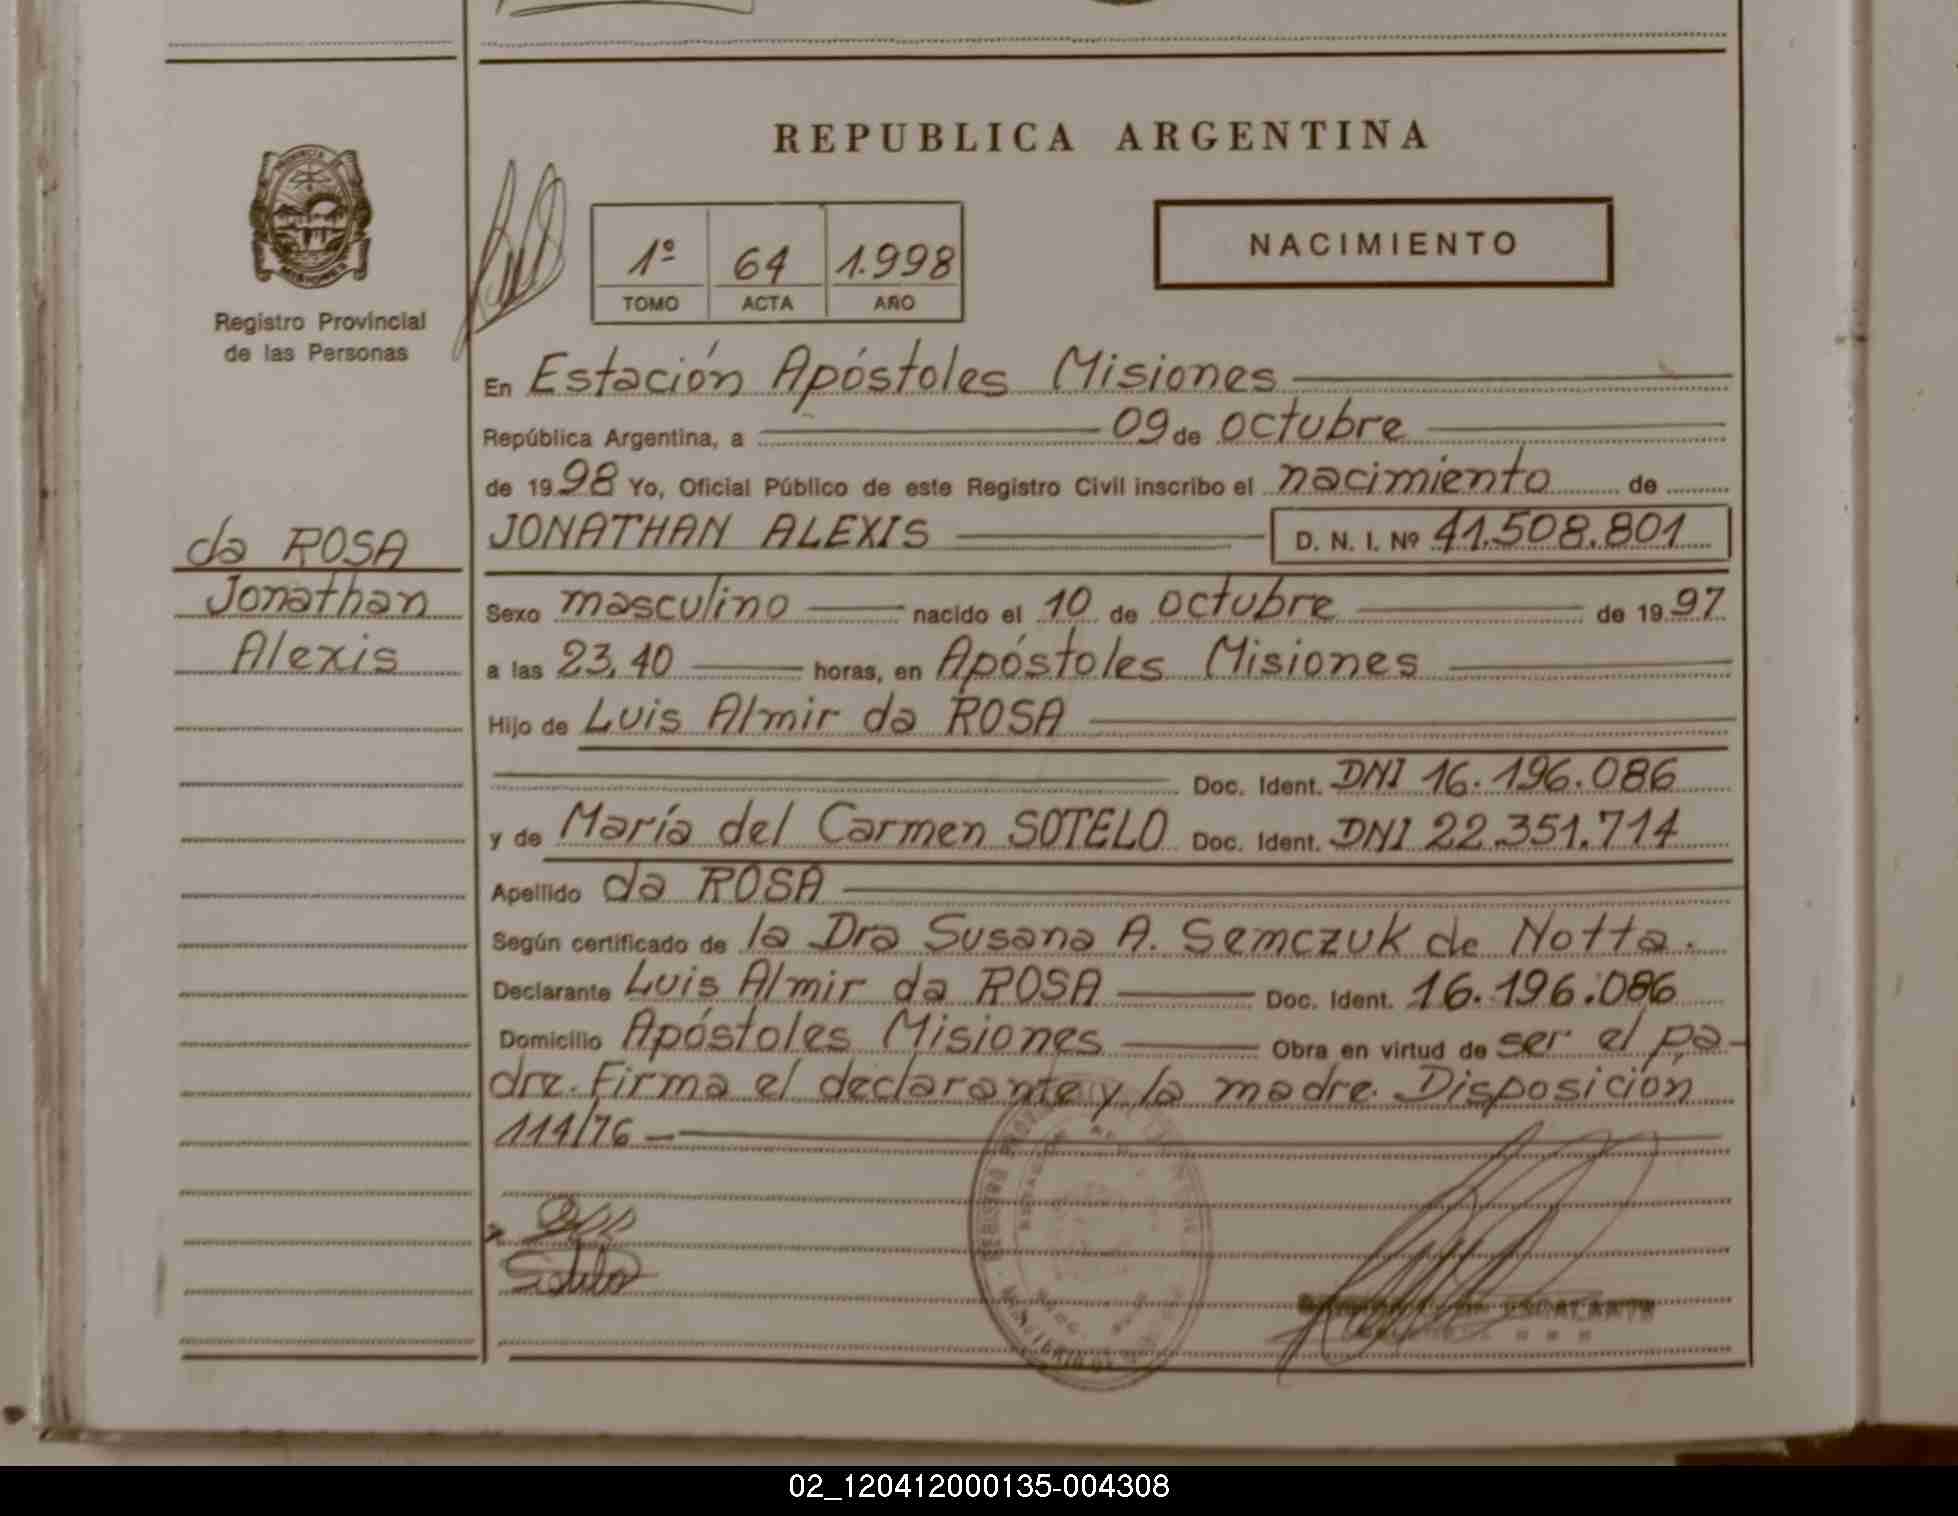 REPUBLICA ARGENTINA
PROVINCIA
MISIONES
Registro Provincial
de las Personas
1º 64 1.998
TOMO ACTA AÑO
NACIMIENTO
En Estación Apóstoles Misiones
República Argentina, a 09 de octubre
de 1998 Yo, Oficial Público de este Registro Civil inscribo el nacimiento de
JONATHAN ALEXIS D. N. I. Nº 41.508.801
da ROSA
Jonathan
Alexis
Sexo masculino nacido el 10 de octubre de 1997
a las 23,40 horas, en Apóstoles Misiones
Hijo de Luis Almir da ROSA
Doc. Ident. DNI 16.196.086
y de María del Carmen SOTELO Doc. Ident. DNI 22.351.714
Apellido da ROSA
Según certificado de la Dra Susana A. Semczuk de Notta.
Declarante Luis Almir da ROSA Doc. Ident. 16.196.086
Domicilio Apóstoles Misiones Obra en virtud de ser el pa-
dre. Firma el declarante y la madre. Disposición
114/76
Sotelo
ESCALANTE
02_120412000135-004308